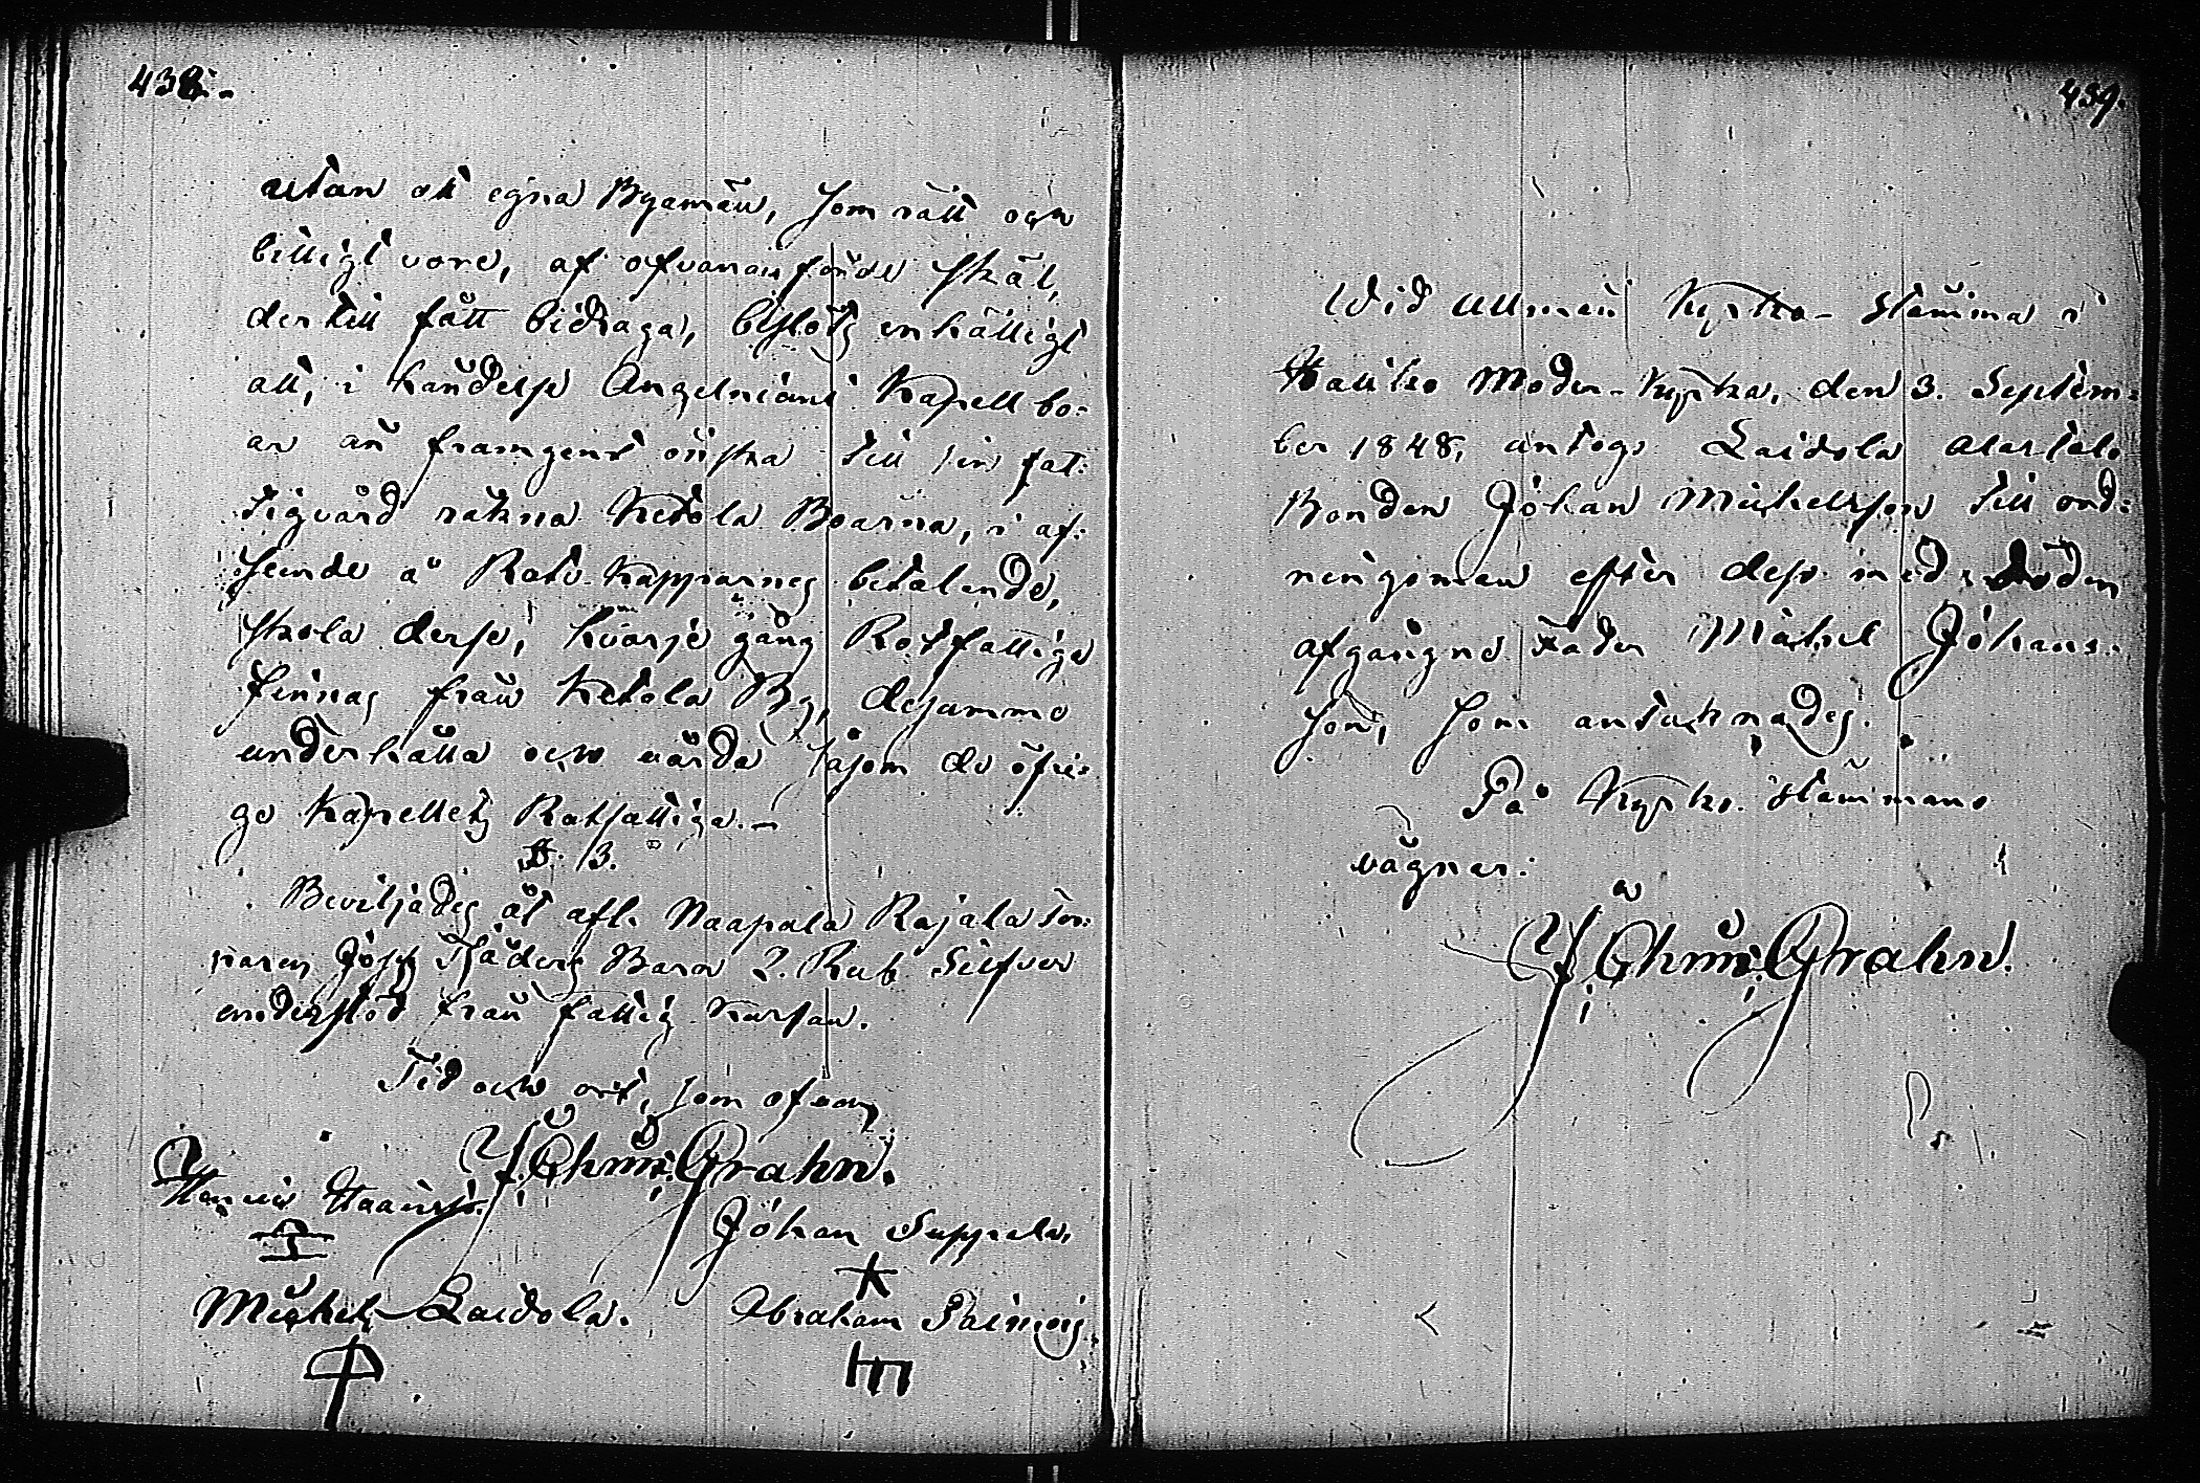 438.
utan ock egna Byamän, som rätt och
billigt vore, af ofvananförde skäl,
dertill fått bidraga, beslöts enhälligt
att, i händelse Angelniemi Kapellbo-
ar än framgent önska till sin fat-
tigvård räkna Ketola Boarna, i af-
seende å Rote Kapparnes betalende,
skola desse, hvarje gång Rotfattige
finnas från Ketola By, desamme
underhålla och vårda såsom de öfri-
ge Kapellets Rotfattiga.
§. 3.
Beviljades åt afl. Naapala Rajala Tor-
paren Jos. Fläders Barn 2. Rub. Silfver
understöd från fattig Kassan.
Tid och ort, som ofvan
F. Ehrnr. Grahn.
Johan Seppelä,
Michel Laidola.
Abraham
439.
Wid Allmän Kyrko-stämma i
Halikko Moder-Kyrka, den 3. Septem-
ber 1848, antogs Laidola
Bonden Johan Michelsson till ord-
ningsman efter dess med döden
afgångne Fader Michel Johans-
son, som antecknades.
På Kyrko-stämmans
vägnar:
F. Ehrnr. Grahn.